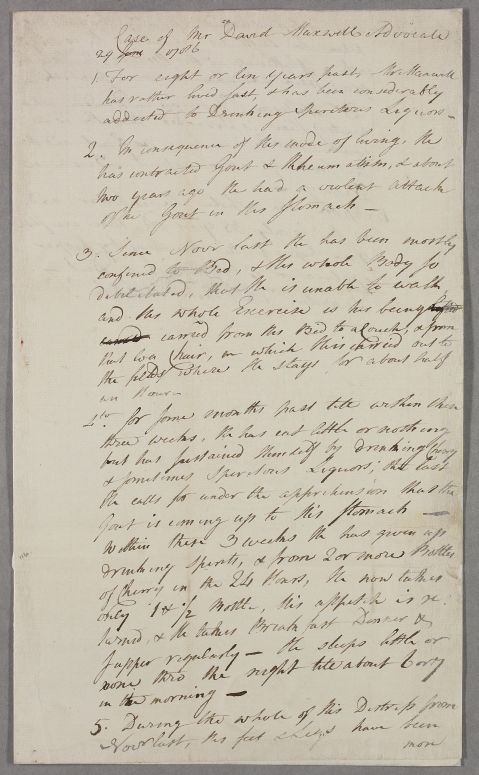 Case of Mr David Maxwell Advocate
29 June 1786
1 For eight or ten years past, Mr Maxwell
has rather lived fast, & has been considerably
addicted to Drinking Spiritous Liquors —
2. In consequence of this mode of living, He
has contracted Gout & Rheumatism, & about
two years ago He had a violent attack
of the Gout in his Stomach —
3. Since Novr last He has been mostly
confined to Bed, & His whole Body so
debilitated, that He is unable to walk
and His whole Exercise is his being
carried from His Bed to a Couch, & from
that to a Chair, in which He is carried out to
the fields where He stays for about half
an Hour —
4to For some months past till within these
three weeks, He has eat little or nothing
but has sustained Himself by drinking Cherry
& sometimes Spiritous Liquors; the last
He calls for under the apprehension that the
Gout is coming up to His Stomach —
Within these 3 weeks He has given up
drinking Spirits, & from 2 or more Bottles
of Cherry in the 24 Hours, He now takes
only 1 & 1/2 Bottle, His appetite is re-
turned, & He takes Breakfast Dinner &
Supper regularly — He sleeps little or
none thro the night till about 6 or 7
in the morning —
5. During the whole of His Distress from
Novr last, His feet & Legs have been
more